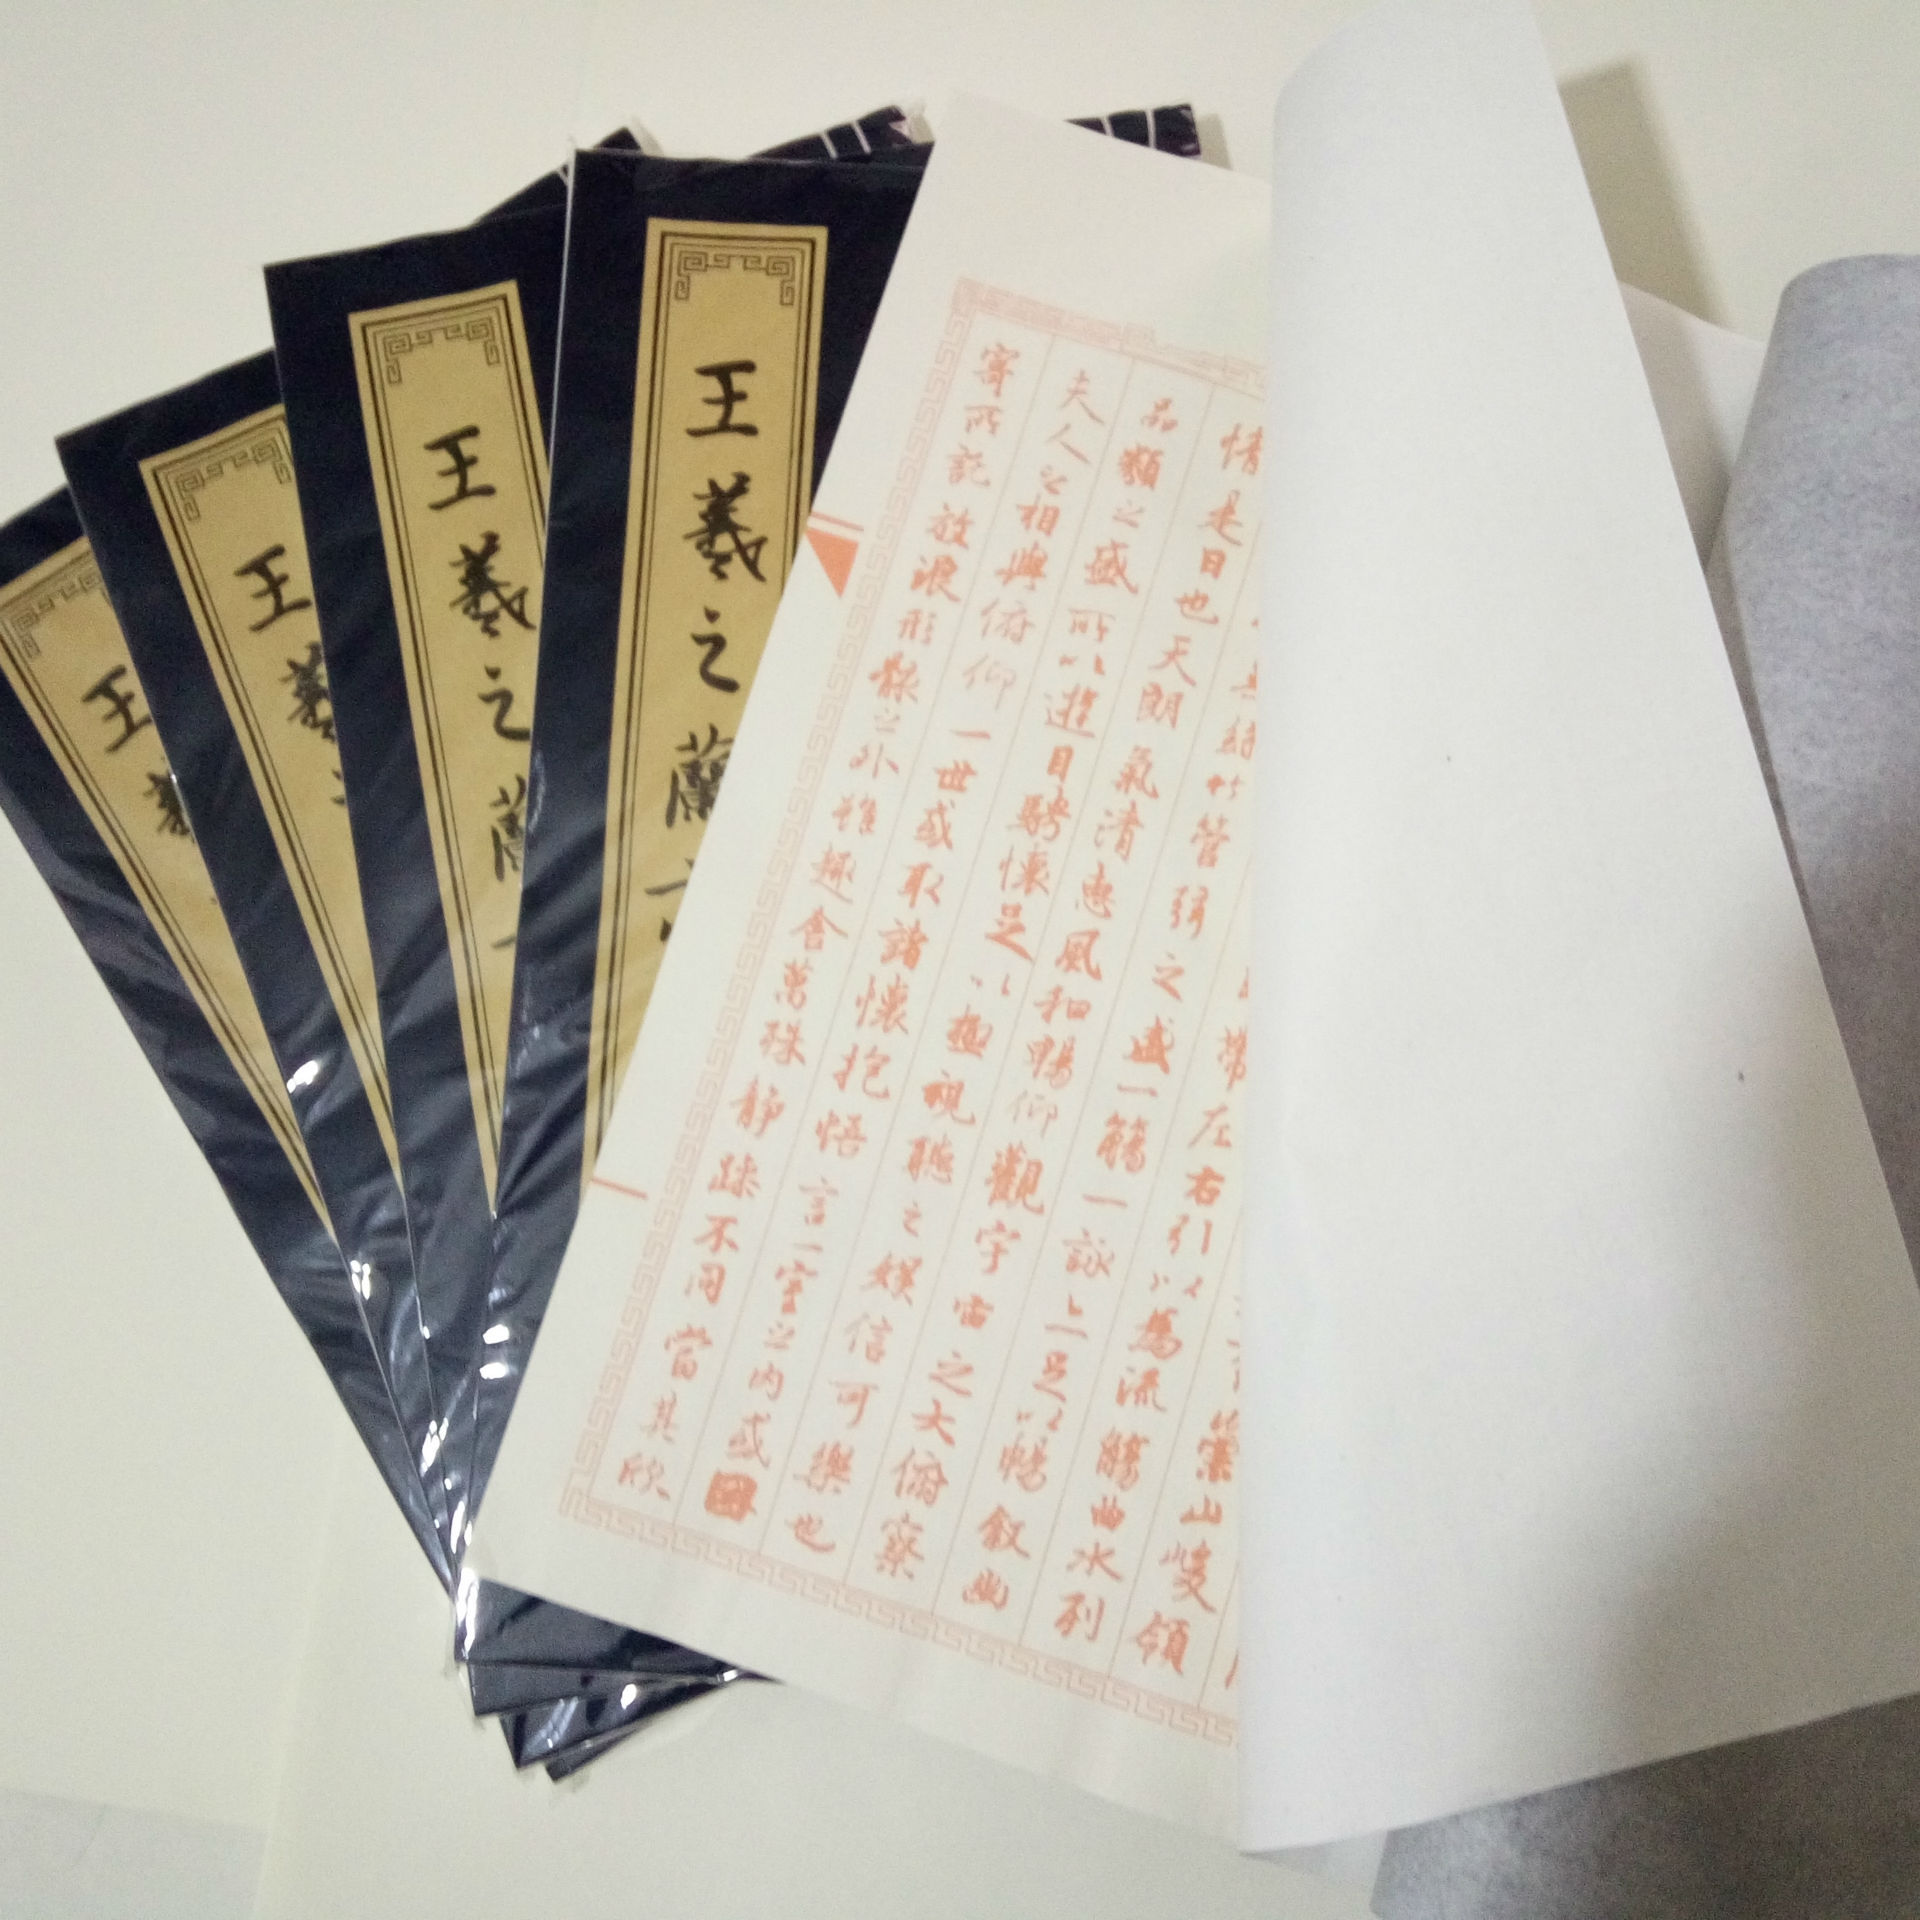 王羲
王羲
王羲之蘭
王羲之蘭
崇山峻領
帶左右引以為流觴曲水列
竹管弦之盛一觴一詠亦足以暢叙幽
情是日也天朗氣清惠風和暢仰觀宇宙之大俯察
品類之盛所以遊目騁懷足以極視聽之娛信可樂也
夫人之相與俯仰一世或取諸懷抱悟言一室之内或因
寄所託放浪形骸之外雖趣舍萬殊静躁不同當其欣